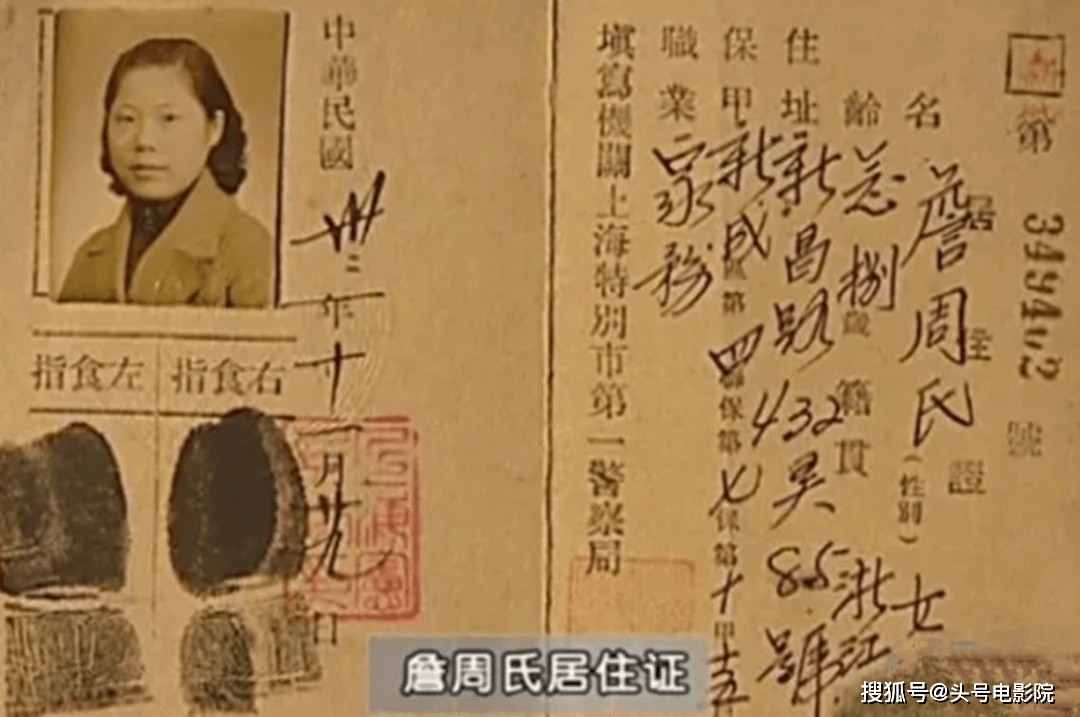 第 349402 號
居住證
名 詹周氏（性別）女
齡 念捌歲 籍貫 浙江
住址 新昌路432弄85號
保甲 新成區第四聯保第七保第十甲十五
職業 家務
填寫機關上海特別市第一警察局
中華民國卅二年十一月廿九日
右食指
左食指
詹周氏居住证
搜狐号@头号电影院